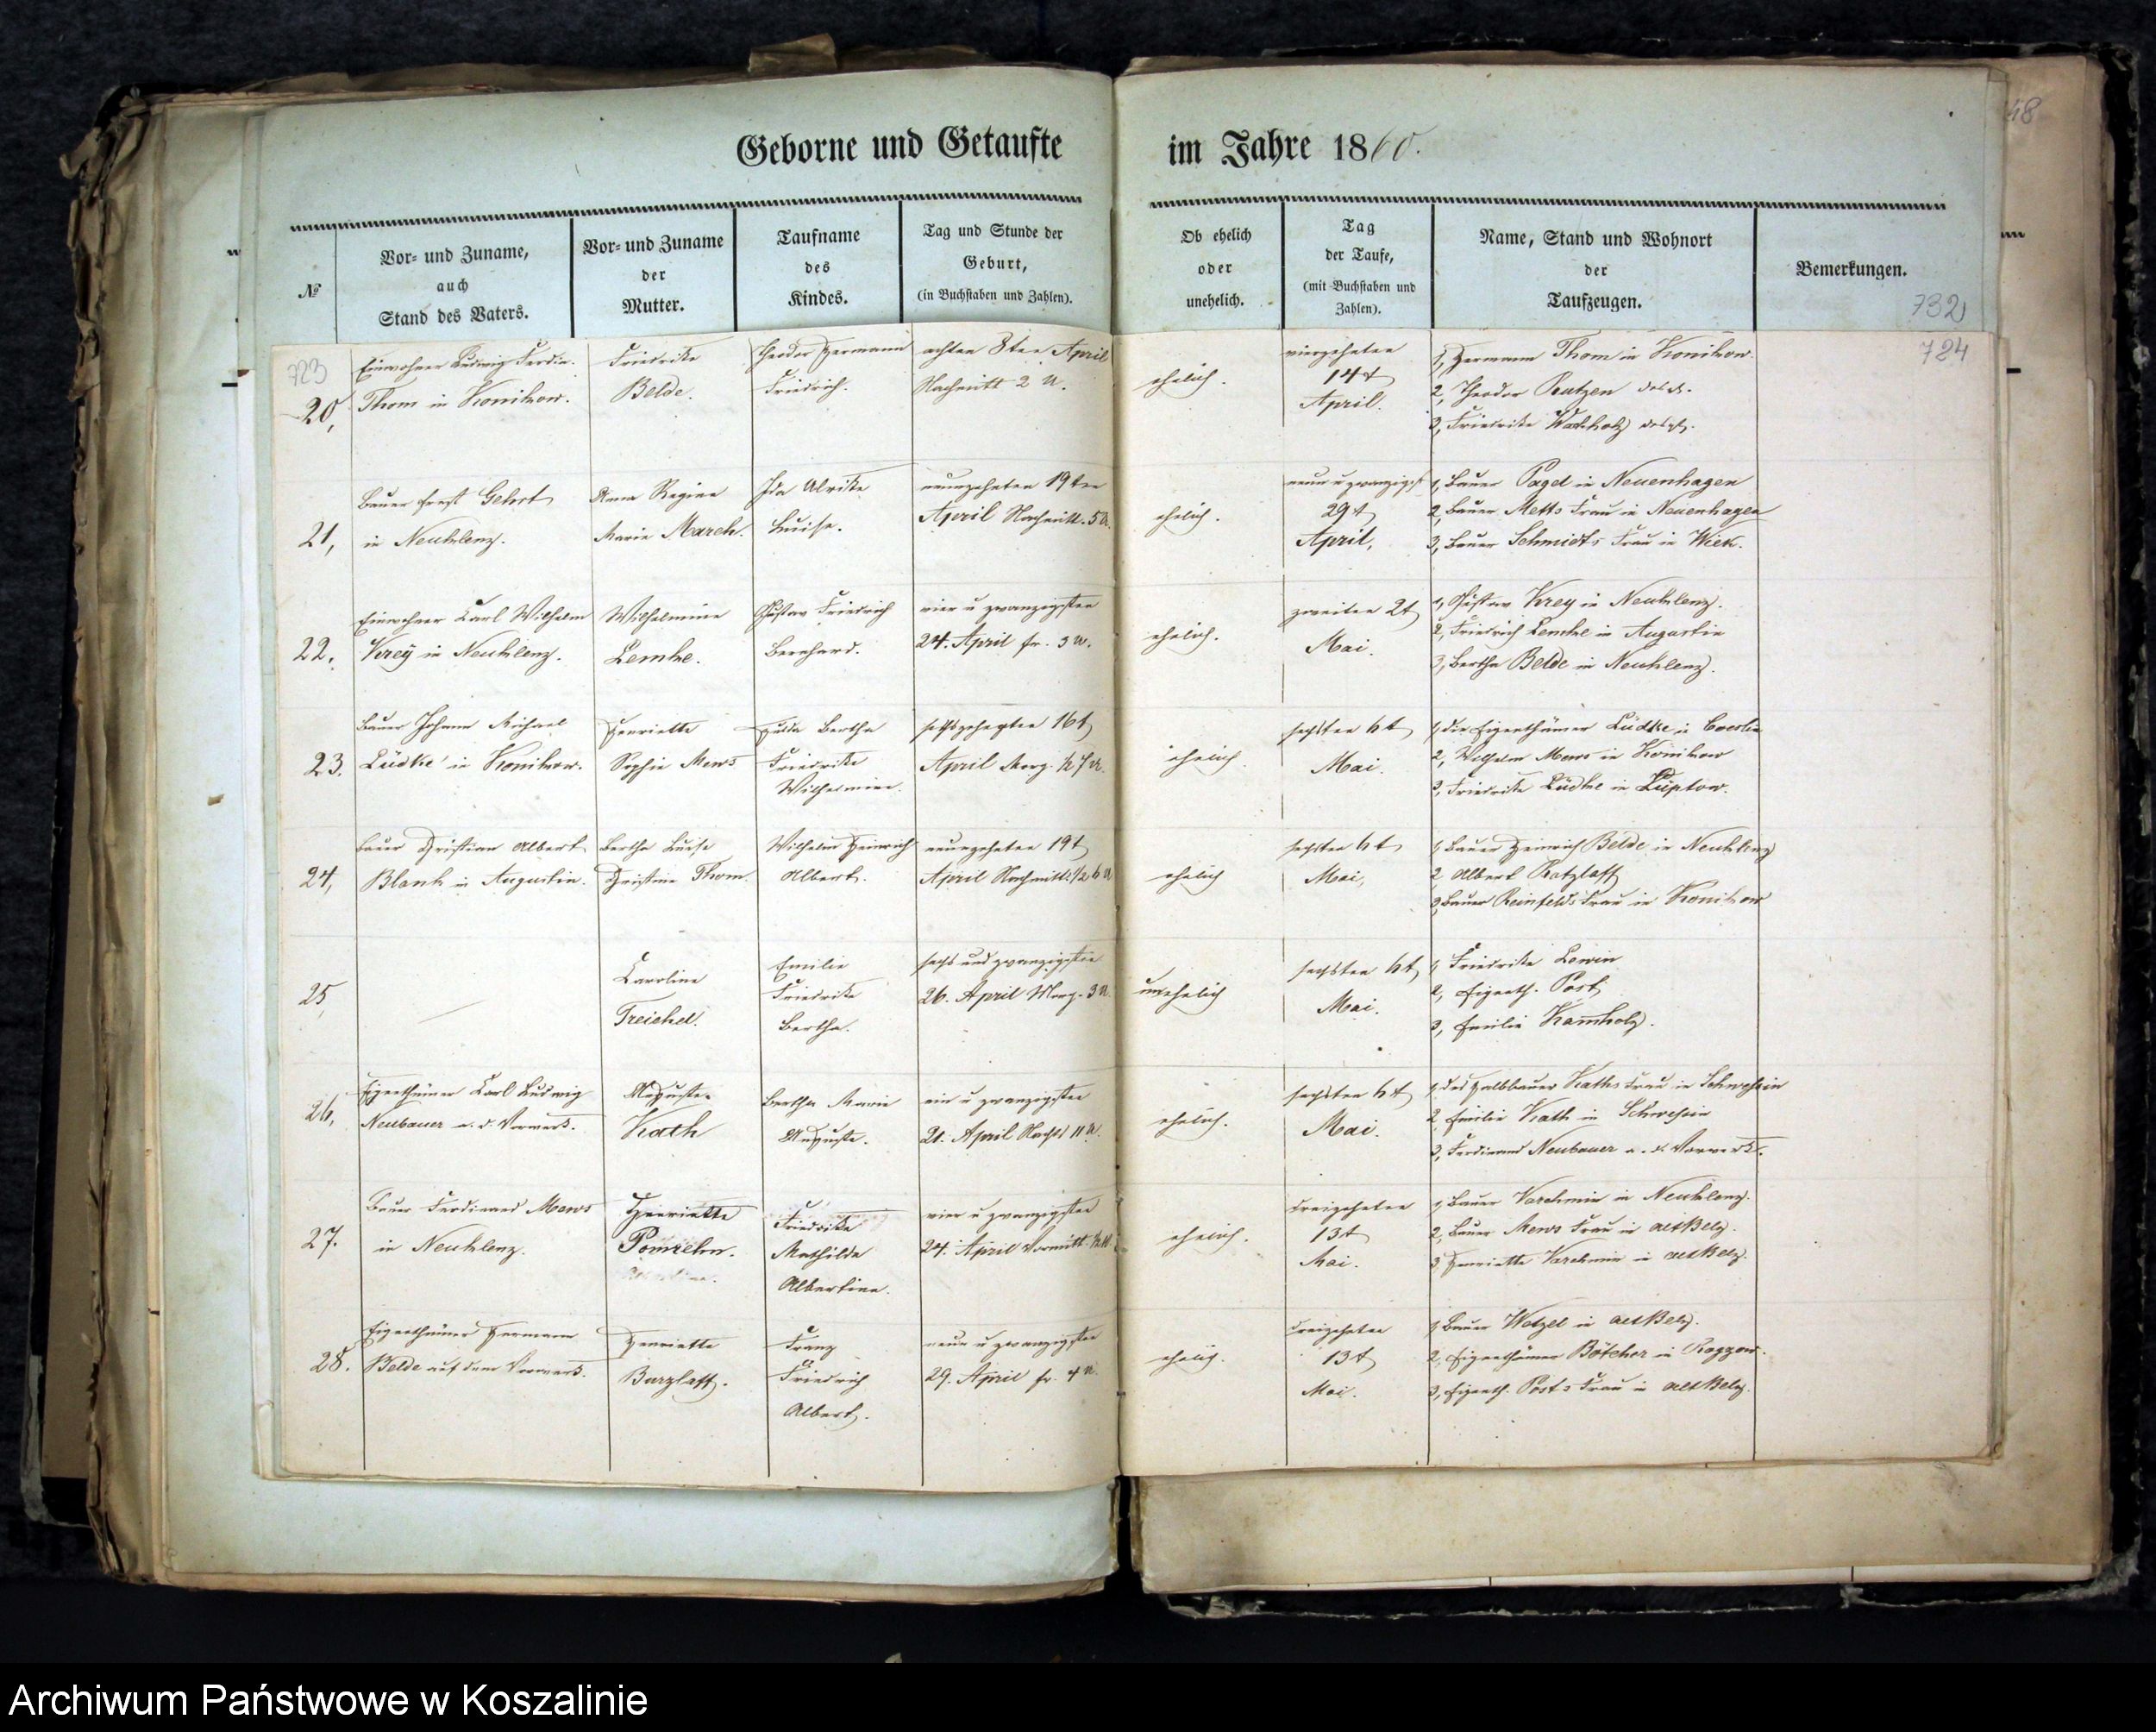 Geborne und Getaufte
im Jahre 1860.
48
№
Vor- und Zuname,
auch
Stand des Vaters.
Vor- und Zuname
der
Mutter.
Taufname
des
Kindes.
Tag und Stunde der
Geburt,
(in Buchstaben und Zahlen).
Ob ehelich
oder
unehelich.
Tag
der Taufe,
(mit Buchstaben und
Zahlen).
Name, Stand und Wohnort
der
Taufzeugen.
Bemerkungen.
732
723
724
20,
Einwohner Ludwig Ferdin.
Thom in Konikow.
Friedrike
Belde.
Theodor Hermann
Friedrich.
achten 8ten April
Nachmitt 2 U.
ehelich.
vierzehnten
14t
April.
1, Hermann Thom in Konikow.
2, Theodor Ratzen
3, Friedrike Wachholz
21,
Bauer Ernst Gehrt
in Neuklenz.
Anna Regine
Marie March.
Ida Ulrike
Luise.
neunzehnten 19ten
April Nachmitt. 5 U.
ehelich.
neun u zwanzigst
29t
April,
1, Bauer Pagel in Neuenhagen
2, Bauer Metts Frau in Neuenhagen
3, Bauer Schmidts Frau in Wiek.
22.
Einwohner Carl Wilhelm
Krey in Neuklenz.
Wilhelmine
Lemke.
Gustav Friedrich
Bernhard.
vier u zwanzigsten
24. April fr. 3 U.
ehelich.
zweiten 2t
Mai.
1, Gustav Krey in Neuklenz.
2, Friedrich Lemke in Augustin
3, Bertha Belde in Neuklenz.
23.
Bauer Johann Michael
Lüdke in Konikow.
Henriette
Sophie Mews
Hulda Bertha
Friedrike
Wilhelmine.
sechszehnten 16t
April Morg. ½ 7 U.
ehelich.
sechsten 6t
Mai.
1, die Eigenthümer Lüdke in Coeslin
2, Wilhelm Mews in Konikow
3, Friedrike Lüdke in Lüptow.
24,
Bauer Christian Albert
Blank in Augustin.
Bertha Luise
Christine Thom.
Wilhelm Heinrich
Albert.
neunzehnten 19t
April Nachmitt. ½ 6 U
ehelich
sechsten 6t
Mai,
1, Bauer Heinrich Belde in Neuklenz
2, Albert Ratzlaff
3, Bauer Reinfelds Frau in Konikow
25,
Caroline
Treichel.
Emilie
Friedrike
Bertha.
sechs und zwanzigsten
26. April Morg. 3 U.
unehelich
sechsten 6t
Mai.
1, Friedrike Lewin
2, Eigenth. Post
3, Emilie Kamholz.
26,
Eigenthümer Carl Ludwig
Neubauer a. d. Vorwerk.
Auguste
Kath
Bertha Marie
Auguste.
ein u zwanzigsten
21. April Nachts 11 U.
ehelich.
sechsten 6t
Mai.
1, des Halbbauer Kaths Frau in Schwessin
2, Emilie Kath in Schwessin
3, Ferdinand Neubauer a. d. Vorwerk.
27.
Bauer Ferdinand Mews
in Neuklenz.
Henriette
Pomrehn.
Friedrike
Mathilde
Albertine.
vier u zwanzigsten
24. April Vormitt.
ehelich.
dreizehnten
13t
Mai.
1, Bauer Varchmin in Neuklenz.
2, Bauer Mews Frau in altBelz.
3, Henriette Varchmin in altBelz.
28.
Eigenthümer Hermann
Belde auf dem Vorwerk.
Henriette
Barzlaff.
Franz
Friedrich
Albert.
neun u zwanzigsten
29. April fr. 4 U.
ehelich.
dreizehnten
13t
Mai.
1, Bauer Wetzel in altBelz.
2, Eigenthümer Bötcher in Roggow.
3, Eigenth. Posts Frau in altBelz.
Archiwum Państwowe w Koszalinie